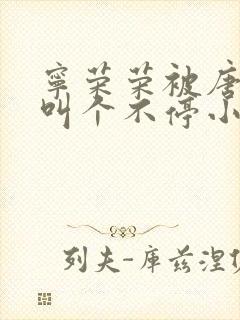 寧荣荣被唐
叫个不停小
列夫-库兹涅